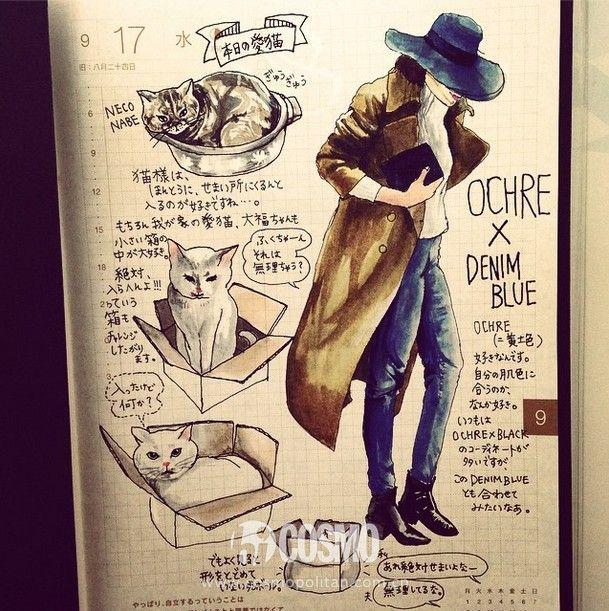 9 17 水
旧:八月二十四日
本日の愛猫
ぎゅうぎゅう
NECO
NABE
猫様は、
ほんとうに、せまい所にくるんと
入るのが好きですね…。
もちろん我が家の愛猫、大福ちゃんも
小さい箱の
中が大好き。
ふくちゃーん
それは
無理ちゃう?
絶対、
入らへんよ!!!
っていう
箱も
チャレンジ
したがり
ます。
入ったけど
何か?
でもよく見ると
形をとどめて
いないダンボール。
私
あれ絶対せまいよなー
夫
無理してるな。
OCHRE
X
DENIM
BLUE
OCHRE
(=黄土色)
好きなんです。
自分の肌色に
合うのか、
なんか好き。
いつもは
OCHRE×BLACK
のコーディネートが
多いですが、
このDENIM BLUE
とも合わせて
みたいなあ。
9
6
9
12
15
18
COSMO
やっぱり、自立するっていうことは
月 火 水 木 金 土 日
1 2 3 4 5 6 7